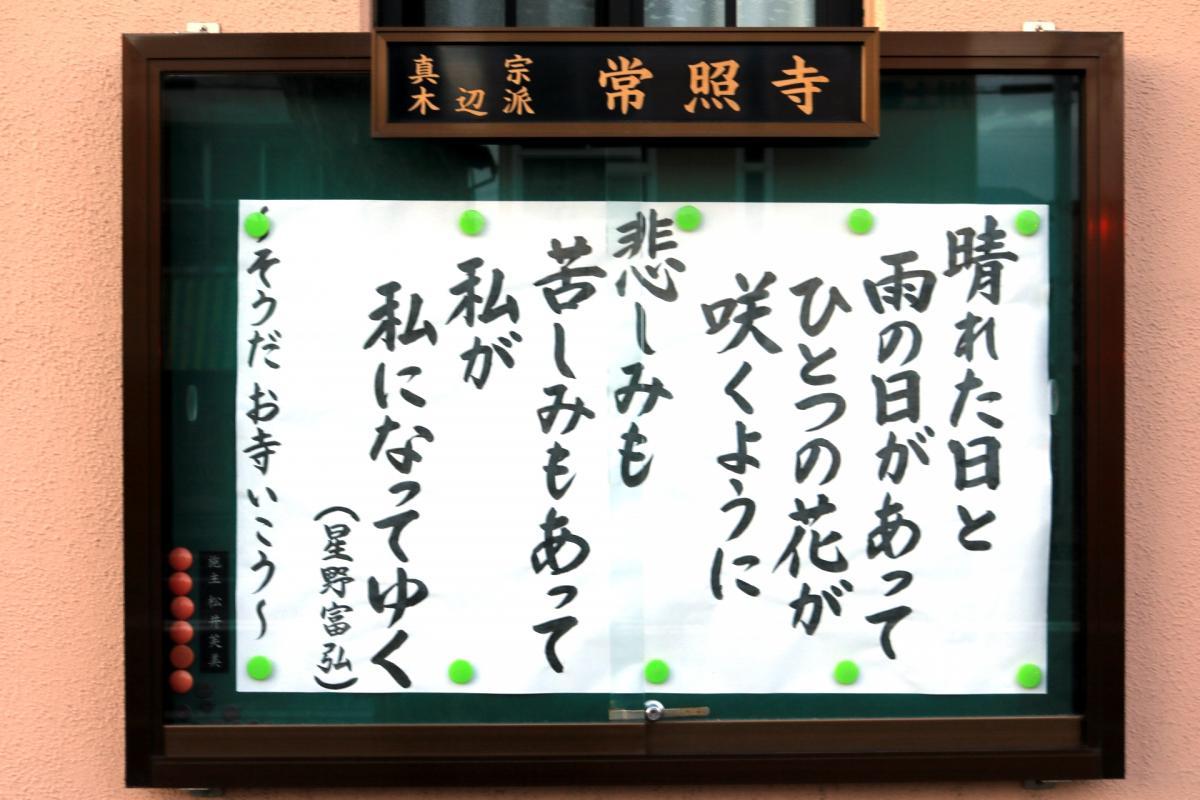 真宗
木辺派
常照寺
晴れた日と
雨の日があって
ひとつの花が
咲くように
悲しみも
苦しみもあって
私が
私になってゆく
（星野富弘）
〜そうだ お寺いこう〜
施主 松井芙美